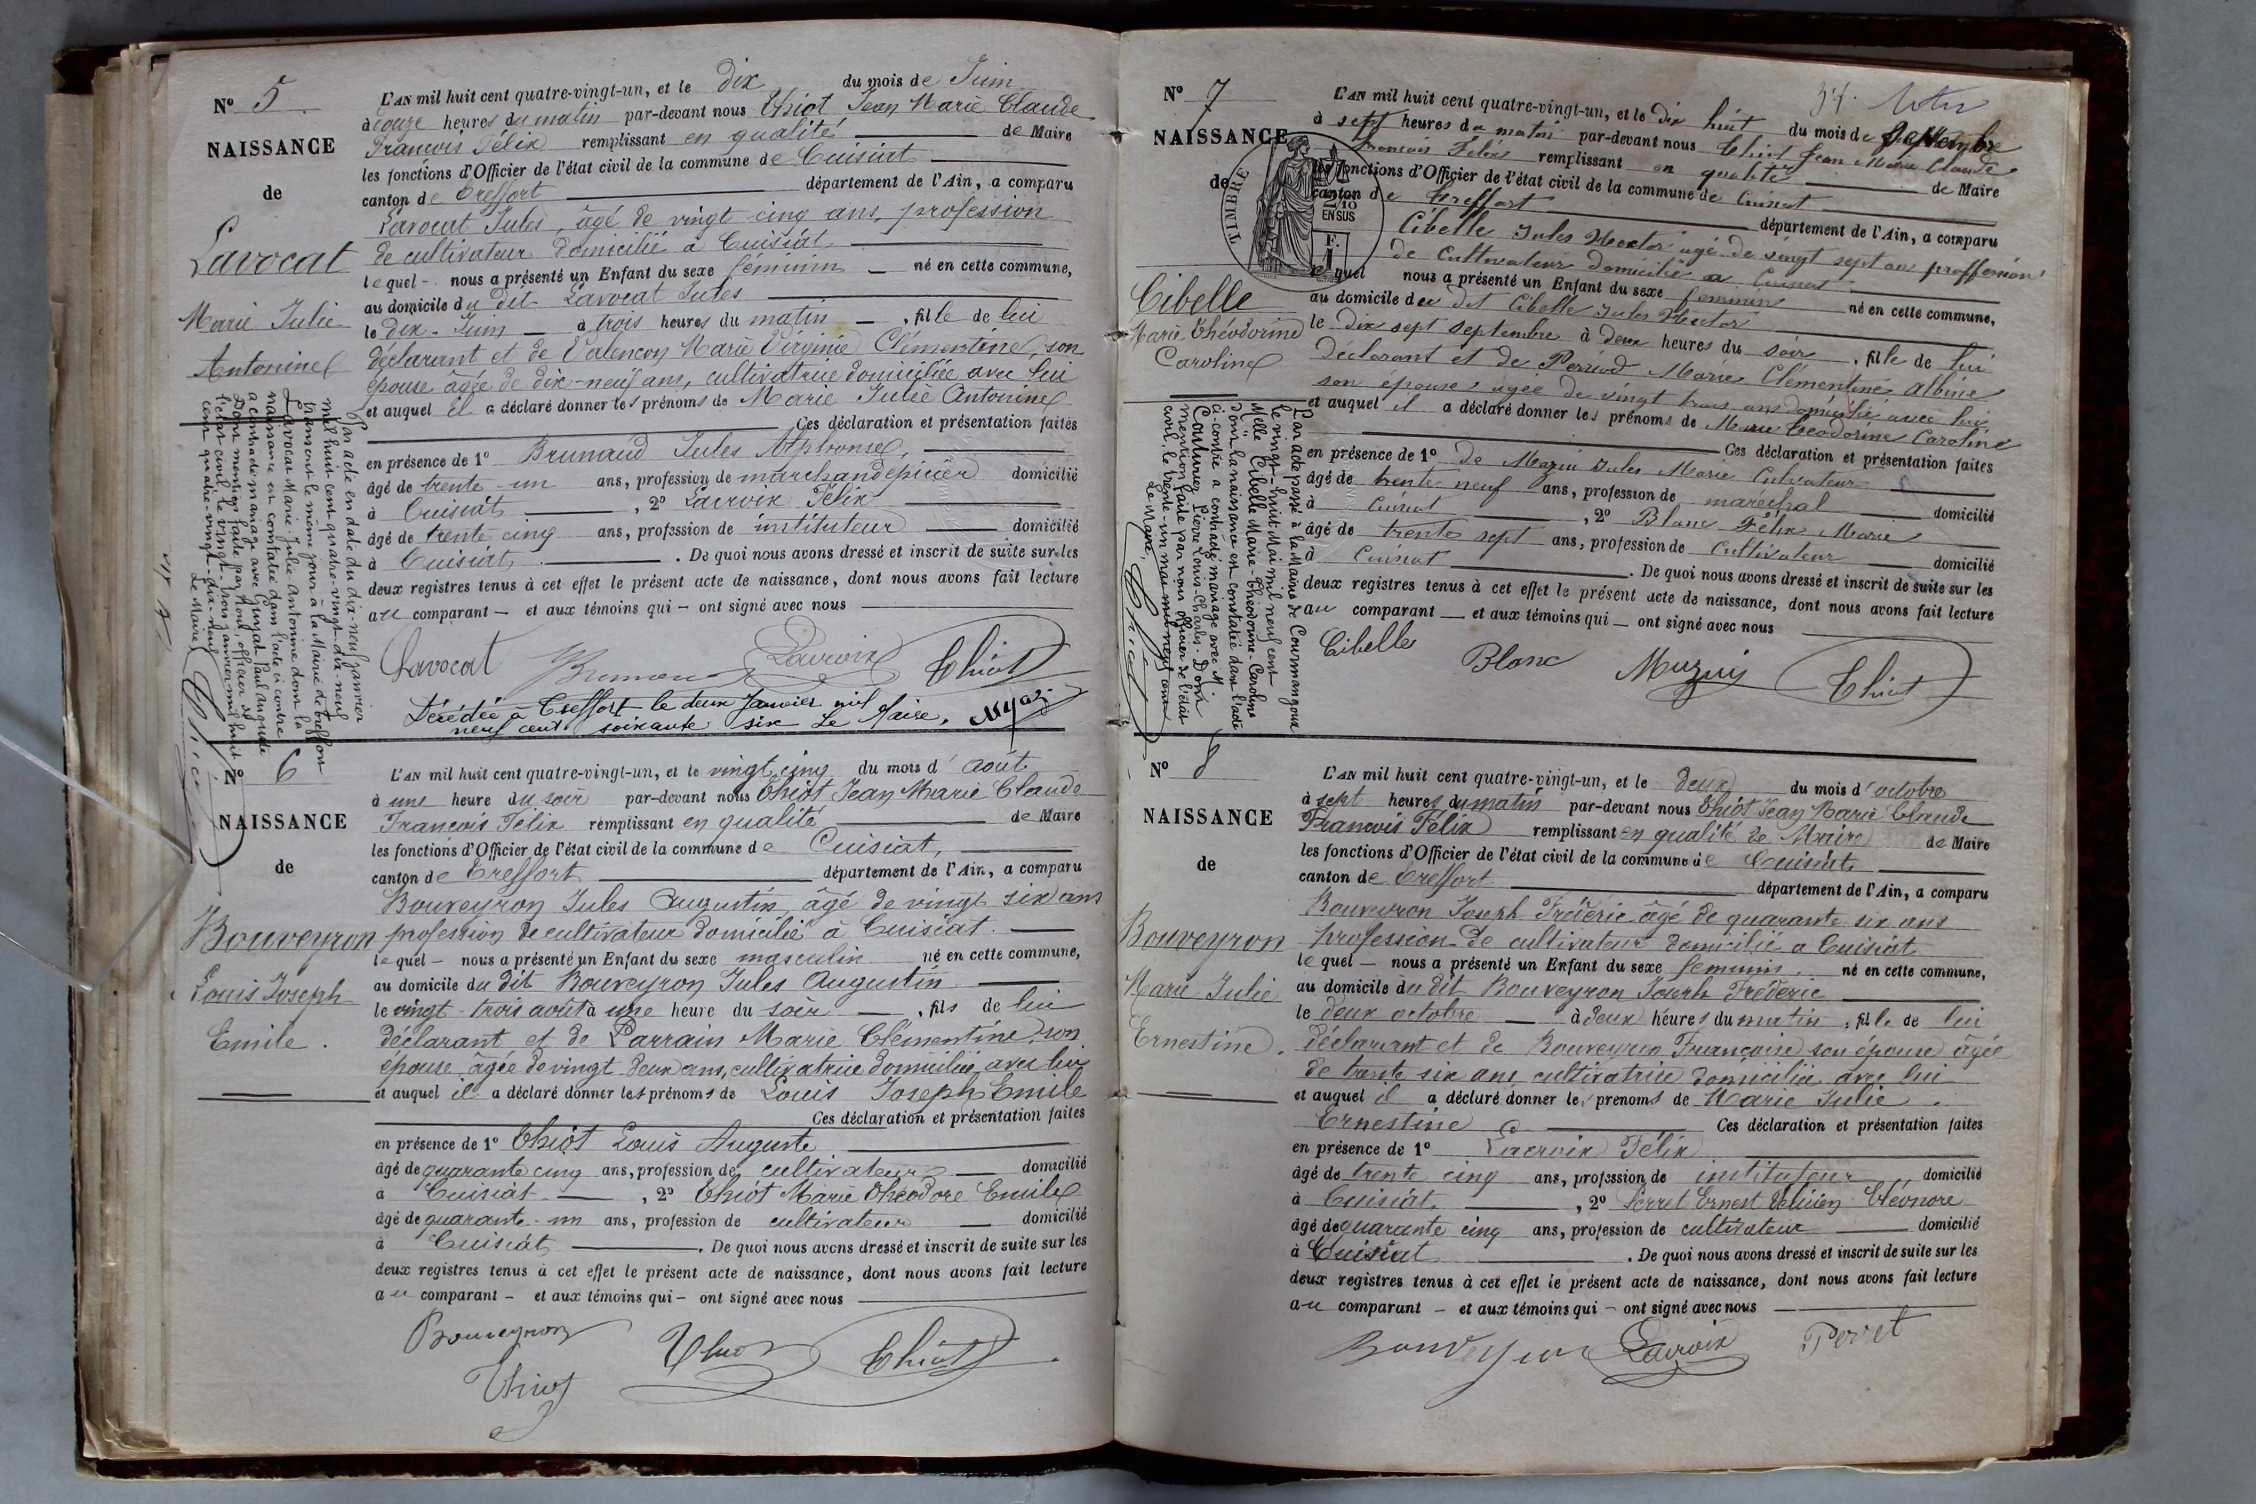 N° 5
NAISSANCE
de
Lavocat
Marie Julie
Antonine
L'AN mil huit cent quatre-vingt-un, et le dix du mois de Juin
à onze heures du matin par-devant nous Thiot Jean Marie Claude
François Félix remplissant en qualité de Maire
les fonctions d'Officier de l'état civil de la commune de Cuisiat
canton de Treffort département de l'Ain, a comparu
Lavocat Jules, âgé de vingt cinq ans, profession
de cultivateur domicilié à Cuisiat
lequel nous a présenté un Enfant du sexe féminin né en cette commune,
au domicile du dit Lavocat Jules
le dix Juin à trois heures du matin, fille de lui
déclarant et de Valençon Marie Virginie Clémentine, son
épouse âgée de dix-neuf ans, cultivatrice domiciliée avec lui
et auquel il a déclaré donner les prénoms de Marie Julie Antonine
Ces déclaration et présentation faites
en présence de 1° Brunaud Jules Alphonse,
âgé de trente un ans, profession de marchand épicier domicilié
à Cuisiat, 2° Lacroix Félix
âgé de trente cinq ans, profession de instituteur domicilié
à Cuisiat. De quoi nous avons dressé et inscrit de suite sur les
deux registres tenus à cet effet le présent acte de naissance, dont nous avons fait lecture
au comparant et aux témoins qui ont signé avec nous
Lavocat Lacroix Thiot
Décédée à Treffort le deux Janvier mil
neuf cent soixante six Le Maire,
Par acte en date du dix-neuf janvier
mil huit cent quatre-vingt-dix-neuf
transcrit le même jour à la Mairie de Treffort
Lavocat Marie Julie Antonine dont la
naissance est constatée dans l'acte ci contre
a contracté mariage avec Guyat Paul Auguste
Dont mention faite par Nous, officier de
l'état civil le vingt-trois janvier mil huit
cent quatre-vingt-dix-neuf
Le Maire,
N° 6
NAISSANCE
de
Bouveyron
Louis Joseph
Emile.
L'AN mil huit cent quatre-vingt-un, et le vingt cinq du mois d'août
à une heure du soir par-devant nous Thiot Jean Marie Claude
François Félix remplissant en qualité de Maire
les fonctions d'Officier de l'état civil de la commune de Cuisiat,
canton de Treffort département de l'Ain, a comparu
Bouveyron Jules Augustin âgé de vingt six ans
profession de cultivateur domicilié à Cuisiat.
lequel nous a présenté un Enfant du sexe masculin né en cette commune,
au domicile du dit Bouveyron Jules Augustin
le vingt trois août à une heure du soir, fils de lui
déclarant et de Parrain Marie Clémentine, son
épouse âgée de vingt deux ans, cultivatrice domiciliée avec lui
et auquel il a déclaré donner les prénoms de Louis Joseph Emile
Ces déclaration et présentation faites
en présence de 1° Thiot Louis Auguste
âgé de quarante cinq ans, profession de cultivateur domicilié
à Cuisiat, 2° Thiot Marie Théodore Emile
âgé de quarante un ans, profession de cultivateur domicilié
à Cuisiat. De quoi nous avons dressé et inscrit de suite sur les
deux registres tenus à cet effet le présent acte de naissance, dont nous avons fait lecture
au comparant et aux témoins qui ont signé avec nous
Bouveyron Thiot Thiot
Thiot
N° 7
NAISSANCE
de
Cibelle
Marie Théodorine
Caroline
TIMBRE
2/10
EN SUS
F.
1
37.
L'AN mil huit cent quatre-vingt-un, et le dix huit du mois de septembre
à sept heures du matin par-devant nous Thiot Jean Marie Claude
François Félix remplissant en qualité de Maire
les fonctions d'Officier de l'état civil de la commune de Cuisiat
canton de Treffort département de l'Ain, a comparu
Cibelle Jules Hector âgé de vingt sept ans proffession
de Cultivateur domicilié a Cuisiat
lequel nous a présenté un Enfant du sexe feminin né en cette commune,
au domicile deu dit Cibelle Jules Hector
le dix sept septembre à deux heures du soir, fille de lui
déclarant et de Perriod Marie Clémentine Albine
son épouse, agée de vingt trois ans domiciliée avec lui
et auquel il a déclaré donner les prénoms de Marie Théodorine Caroline
Ces déclaration et présentation faites
en présence de 1° Jules Marie Cultivateur
âgé de trente neuf ans, profession de maréchal domicilié
à Cuisiat, 2° Blanc Félix Marie
âgé de trente sept ans, profession de Cultivateur domicilié
à Cuisiat. De quoi nous avons dressé et inscrit de suite sur les
deux registres tenus à cet effet le présent acte de naissance, dont nous avons fait lecture
au comparant et aux témoins qui ont signé avec nous
Cibelle Blanc Thiot
Par acte passé à la Mairie de Courmangoux
le vingt-huit Mai mil neuf cent
Melle Cibelle Marie-Théodorine-Caroline
dont la naissance est constatée dans l'acte
ci-contre a contracté mariage avec M.
Couturier Pierre Louis Charles. Dont
mention faite par nous officier de l'état
civil, le trente-un mai mil neuf cent
Le Maire,
N° 8
NAISSANCE
de
Bouveyron
Marie Julie
Ernestine.
L'AN mil huit cent quatre-vingt-un, et le deux du mois d'octobre
à sept heures du matin par-devant nous Thiot Jean Marie Claude
François Félix remplissant en qualité de Maire de Maire
les fonctions d'Officier de l'état civil de la commune de Cuisiat,
canton de Treffort département de l'Ain, a comparu
Bouveyron Joseph Fréderic âgé de quarante six ans
profession de cultivateur domicilié a Cuisiat
lequel nous a présenté un Enfant du sexe feminin né en cette commune,
au domicile du dit Bouveyron Joseph Fréderic
le deux octobre à deux heures du matin, fille de lui
déclarant et de Bouveyron Françoise son épouse âgée
de trente six ans cultivatrice domiciliée avec lui
et auquel il a déclaré donner les prénoms de Marie Julie
Ernestine Ces déclaration et présentation faites
en présence de 1° Lacroix Félix
âgé de trente cinq ans, profession de instituteur domicilié
à Cuisiat, 2° Perret Ernest Eléonore
âgé de quarante cinq ans, profession de cultivateur domicilié
à Cuisiat. De quoi nous avons dressé et inscrit de suite sur les
deux registres tenus à cet effet le présent acte de naissance, dont nous avons fait lecture
au comparant et aux témoins qui ont signé avec nous
Bouveyron Lacroix Perret